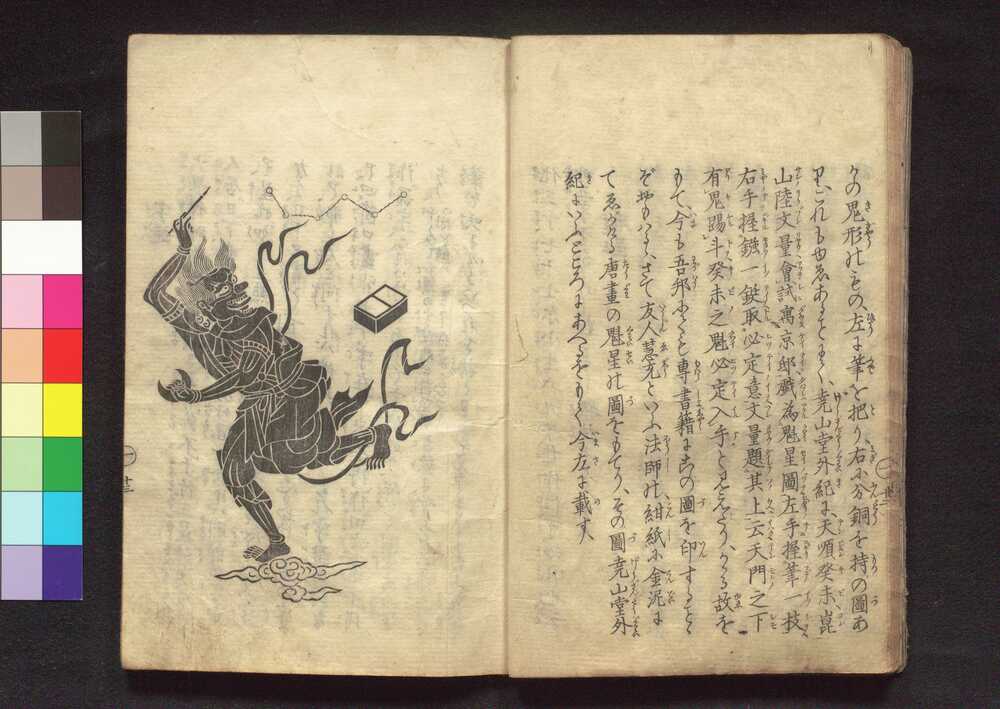 の鬼形のもの左に筆を把り右に分銅を持の圖あ
り、これもゆゑあることにて、尭山堂外紀に、天順癸未崑
山陸文量會試寓京邸戯為魁星圖左手握筆一技
右手握鏹一錠取必定意文量題其上云天門之下
有鬼踢斗癸未之魁必定入手と見えたり、かゝる故を
もて、今も吾邦にても専書籍にこの圖を印すること
ぞおもはる、さて友人慧光といふ法師の紺紙に金泥に
てゑがける唐畫の魁星の圖をもてり、その圖尭山堂外
紀にいふところにあへるをもて今左に載す